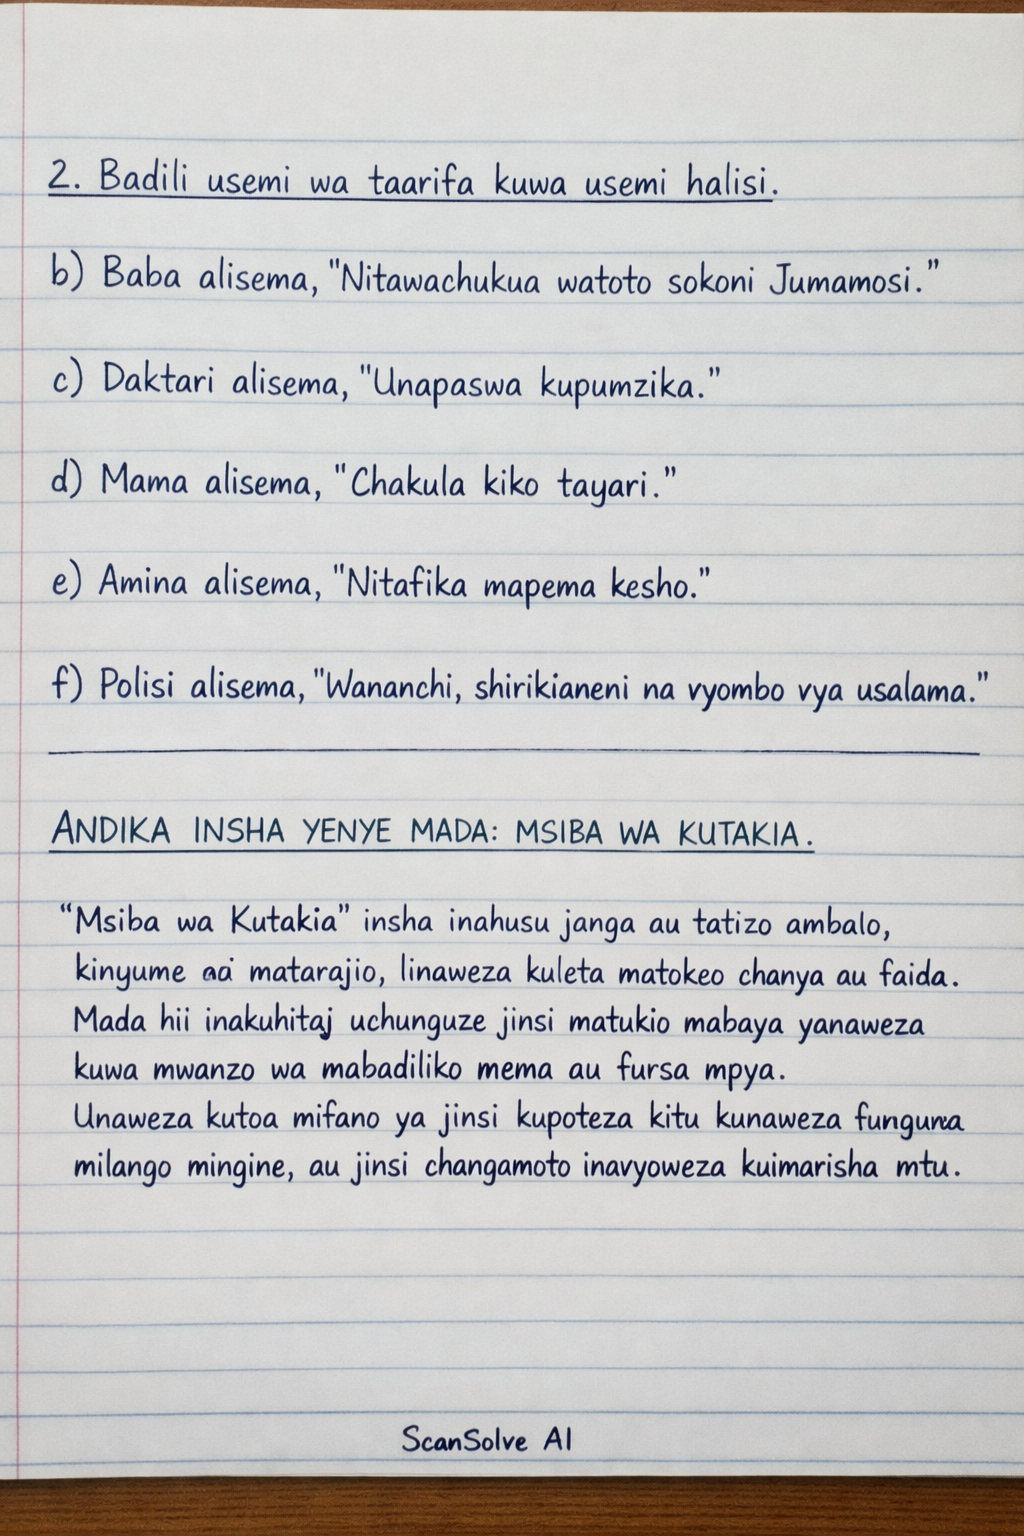 2. Badili usemi wa taarifa kuwa usemi halisi.
b) Baba alisema, "Nitawachukua watoto sokoni Jumamosi."
c) Daktari alisema, "Unapaswa kupumzika."
d) Mama alisema, "Chakula kiko tayari."
e) Amina alisema, "Nitafika mapema kesho."
f) Polisi alisema, "Wananchi, shirikianeni na vyombo vya usalama."
ANDIKA INSHA YENYE MADA: MSIBA WA KUTAKIA.
"Msiba wa Kutakia" insha inahusu janga au tatizo ambalo,
kinyume matarajio, linaweza kuleta matokeo chanya au faida.
Mada hii inakuhitaj uchunguze jinsi matukio mabaya yanaweza
kuwa mwanzo wa mabadiliko mema au fursa mpya.
Unaweza kutoa mifano ya jinsi kupoteza kitu kunaweza
milango mingine, au jinsi changamoto inavyoweza kuimarisha mtu.
ScanSolve AI